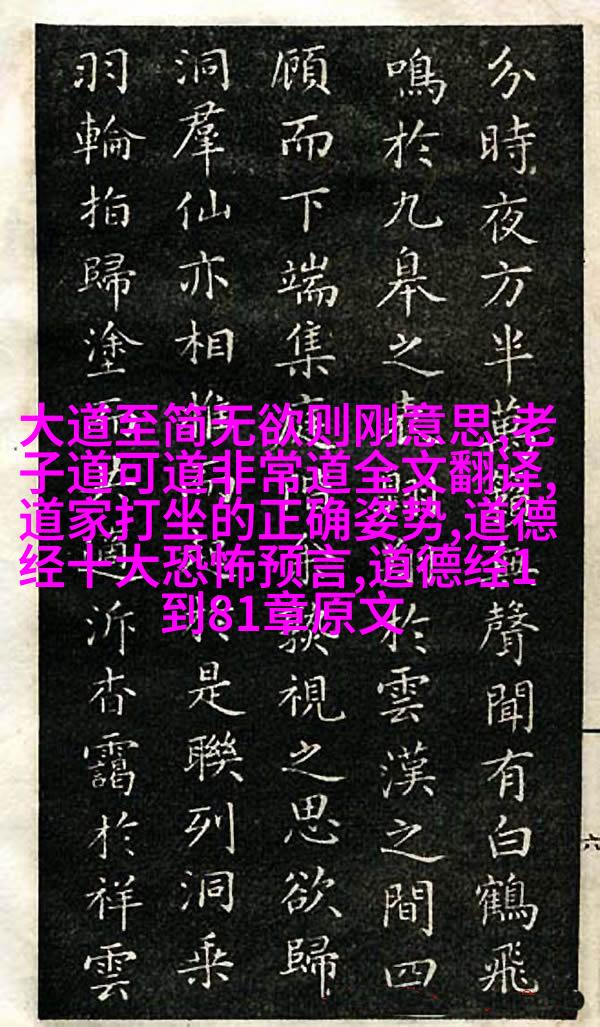 大道至简无欲则刚意思,老
子道可道非常道全文翻译,
道家打坐的正确姿势,道德
经十大恐怖预言,道德经1
到81章原文
分時夜方半萬聲聞有白鶴飛
鳴於九皋之於雲漢之間四
顧而下端集視之思欲歸
洞羣仙亦相於是聯列洞乘
羽輪拍歸塗泝杳靄於祥雲
六